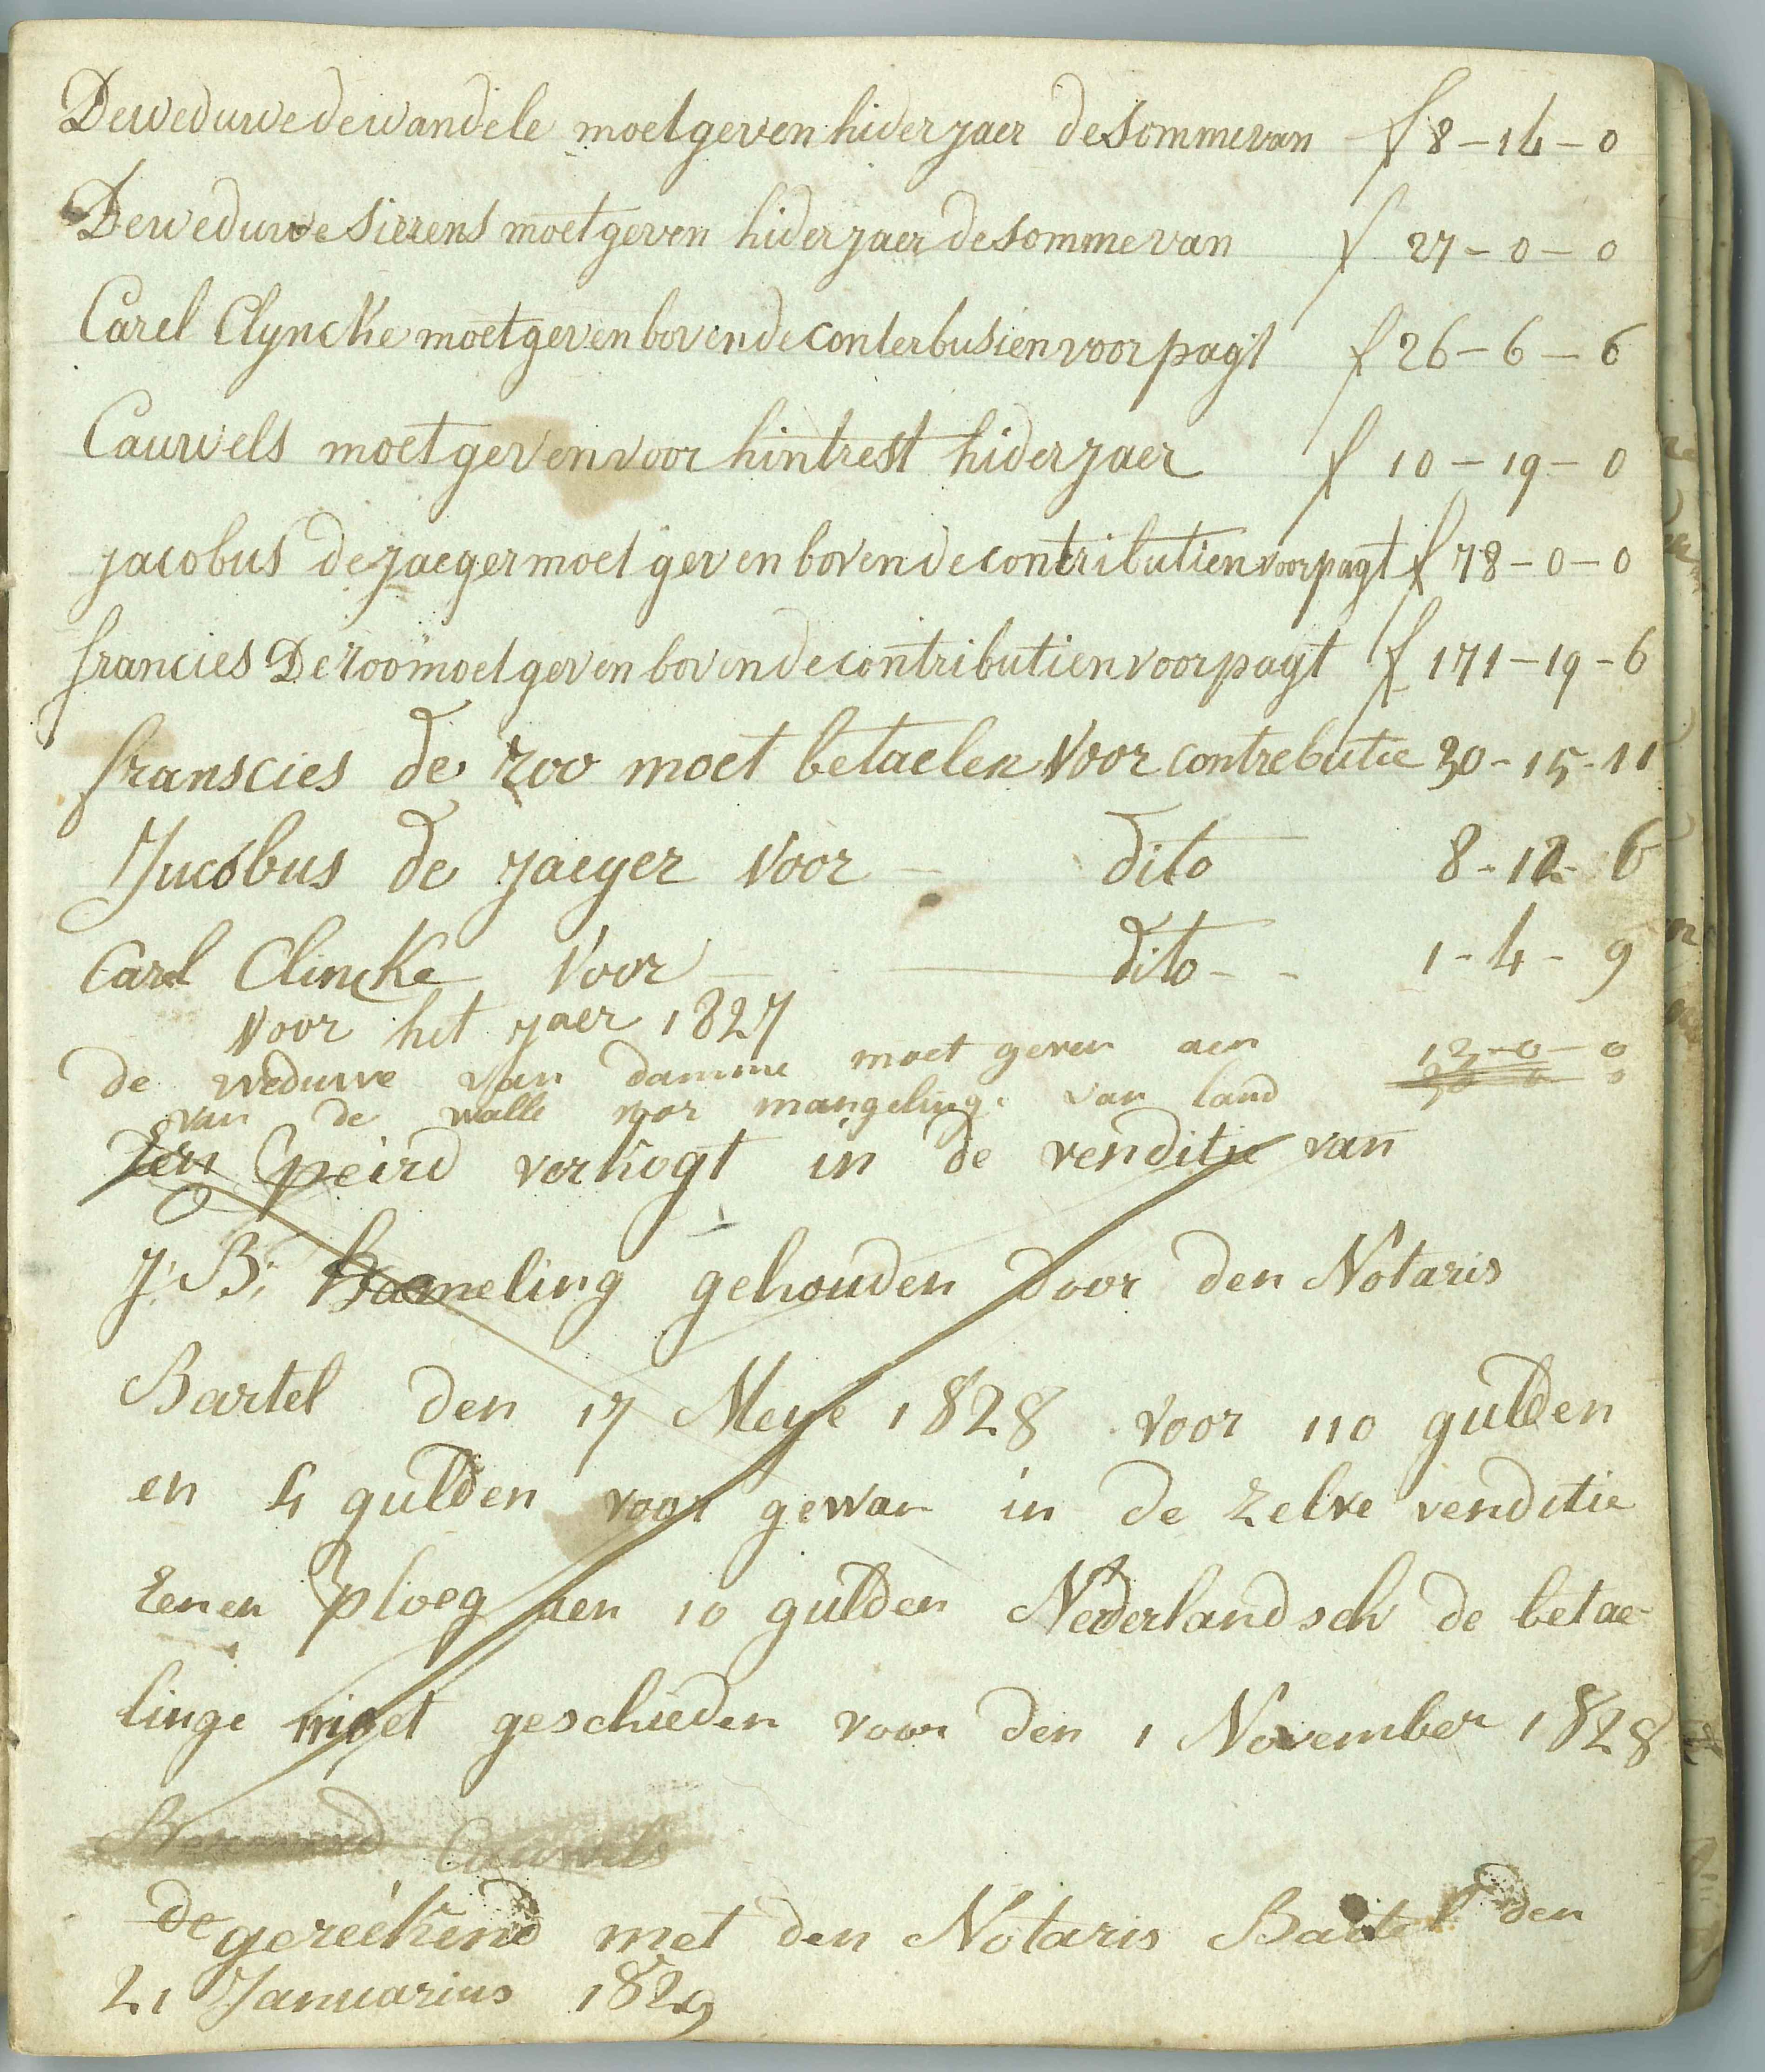 De weduwe dewandele moet geven hider jaer de somme van f 8-14-0
De weduwe sierens moet geven hider jaer de somme van f 27-0-0
Carel Clyncke moet geven boven de conterbusien voor pagt f 26-6-6
Cauwels moet geven voor hintrest hider jaer f 10-19-0
jacobus de jaeger moet geven boven de contributien voor pagt f 78-0-0
francies De roo moet geven boven de contributien voor pagt f 171-19-6
franscies de roo moet betaelen voor contrebutie 30-15-11
Jucobus de jaeger voor - dito 8-12-6
Carel Clincke voor dito - - 1-4-9
voor het jaer 1827
de weduwe van damme moet geven aen 12-0-0
van de walle voor mangeling van land
Een peird verkogt in de venditie van
J: B: Hameling gehouden door den Notaris
Bartel den 17 Meye 1828 voor 110 gulden
en 4 gulden voor gewan in de zelve venditie
Eenen ploeg aen 10 gulden Nederlandsch de betae-
linge moet geschieden voor den 1 November 1828
Cauwels
de gereékend met den Notaris Bartel den
21 Januarius 1829